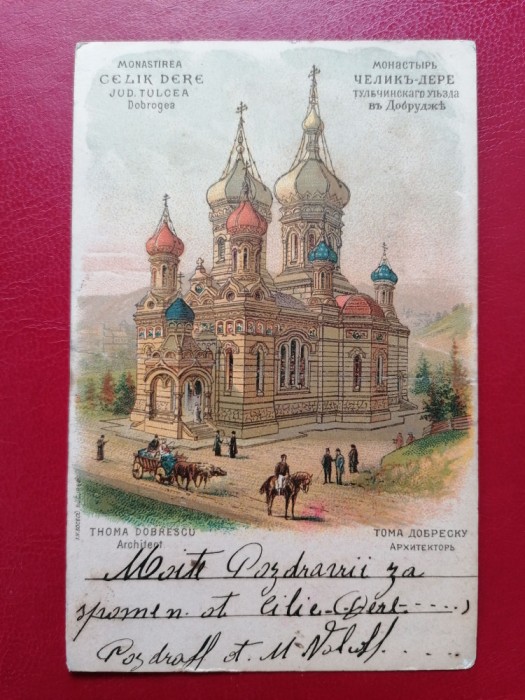 MONASTIREA
CELIK DERE
JUD. TULCEA
Dobrogea
МОНАСТЫРЬ
ЧЕЛИКЪ-ДЕРЕ
ТУЛЬЧИНСКАГО УѢЗДА
въ Добруджѣ
THOMA DOBRESCU
Architect
ТОМА ДОБРЕСКУ
АРХИТЕКТОРЪ
Moite Pozdravii za
spomen ot Cilic-Dere
Pozdraff ot M